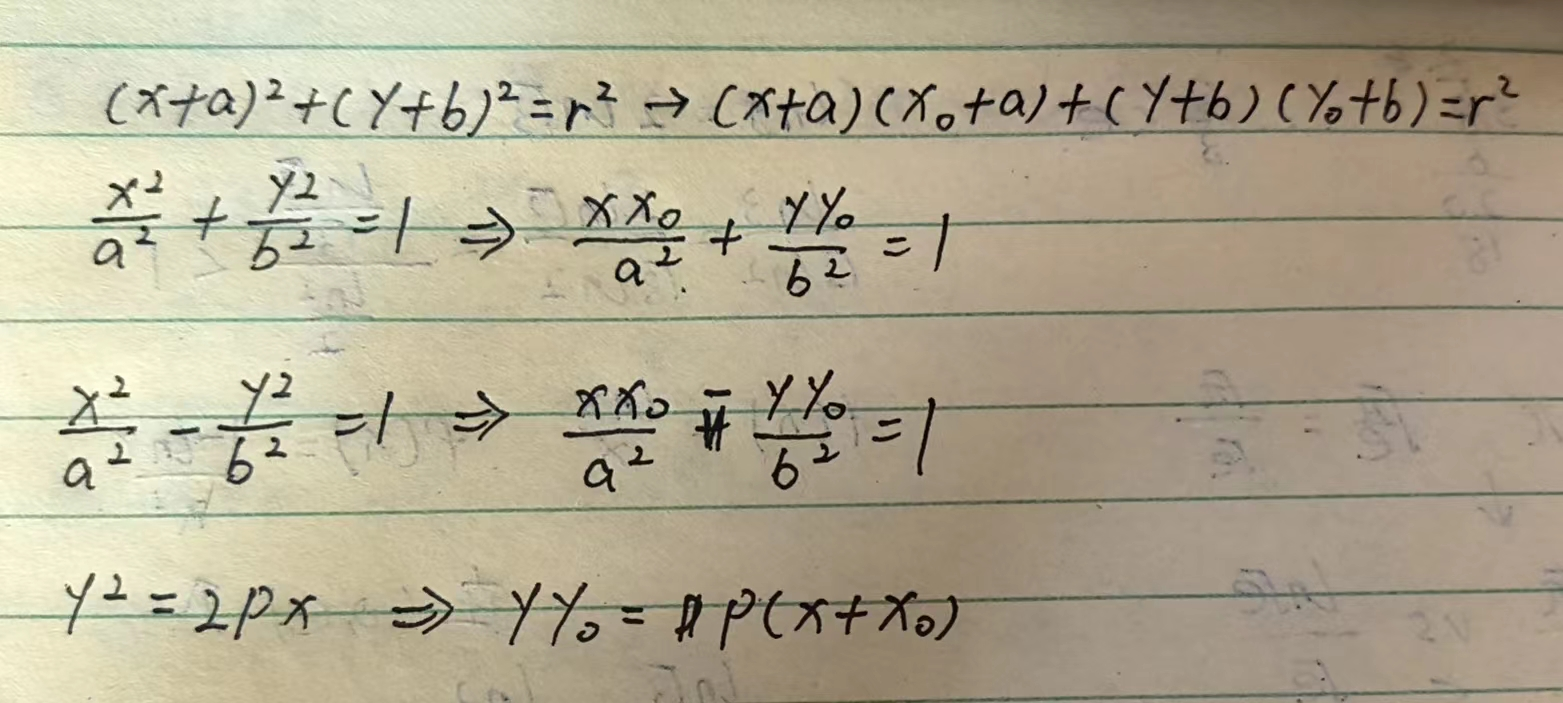 (x+a)²+(y+b)²=r² → (x+a)(x₀+a)+(y+b)(y₀+b)=r²
x²/a² + y²/b² = 1 ⇒ xx₀/a² + yy₀/b² = 1
x²/a² - y²/b² = 1 ⇒ xx₀/a² - yy₀/b² = 1
y² = 2px ⇒ yy₀ = p(x+x₀)